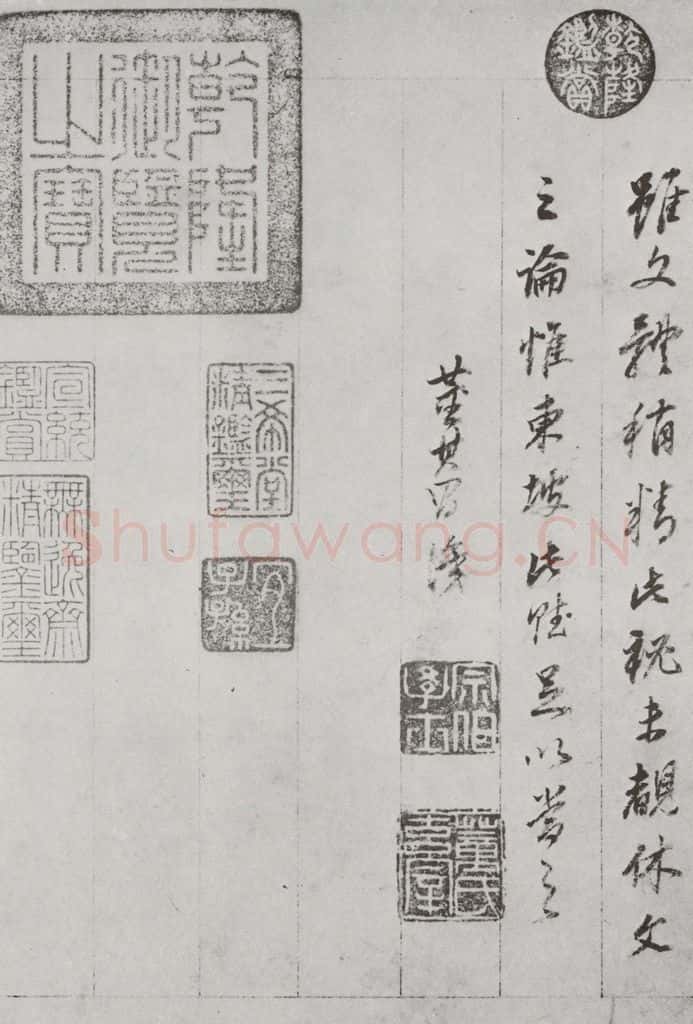 乾隆鑑賞
雖文體稍精此祕未覩休文
之論惟東坡此賦足以當之
董其昌識
宗伯學士
董氏玄宰
乾隆御覽之寶
三希堂精鑑璽
宜子孫
宣統鑑賞
無逸齋精鑒璽
Shufawang.CN